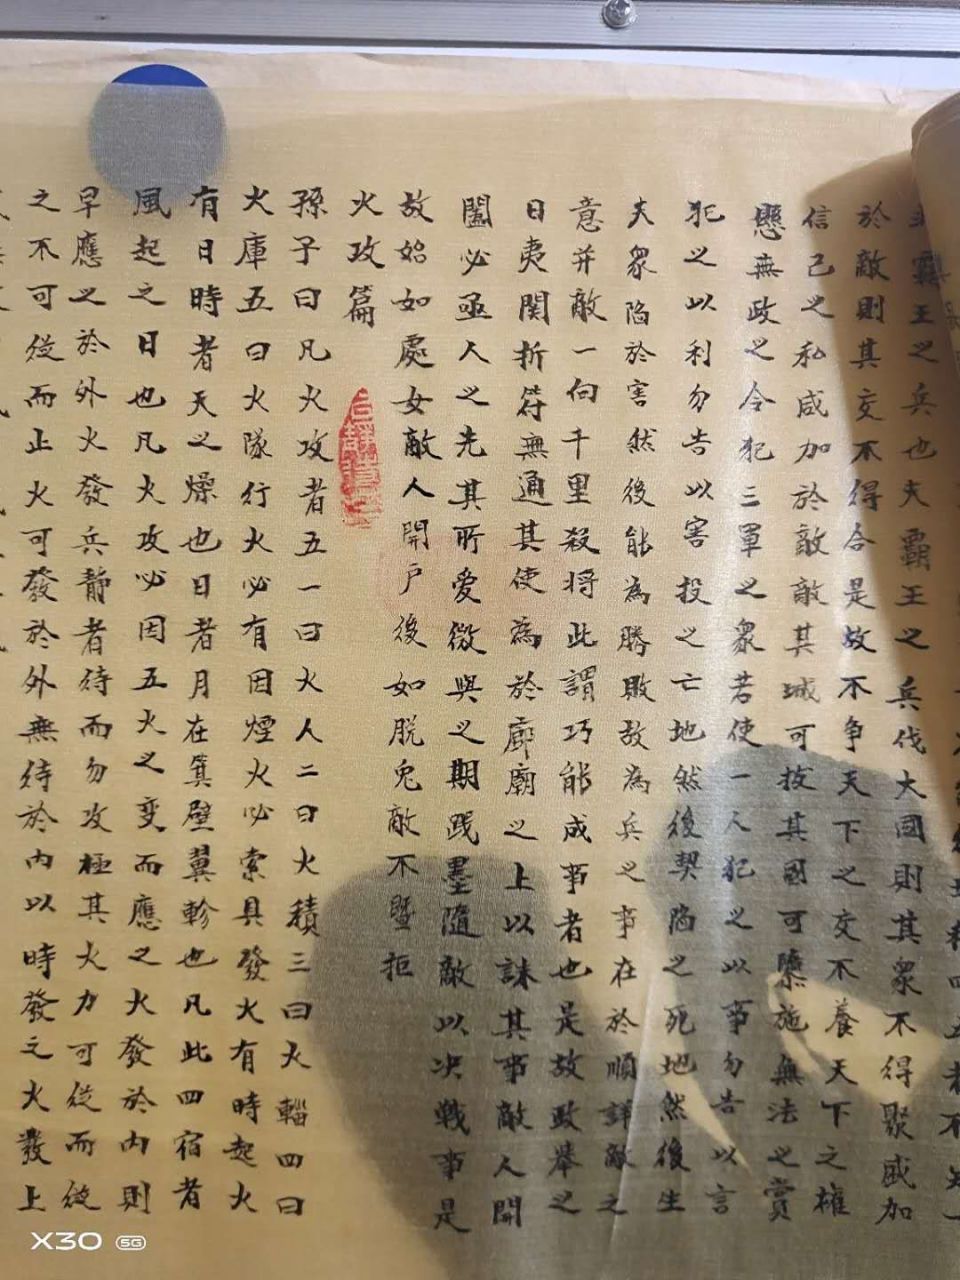 非霸王之兵也夫霸王之兵伐大國則其眾不得聚威加
於敵則其交不得合是故不争天下之交不養天下之權
信己之私威加於敵敵其城可拔其國可隳施無法之賞
懸無政之令犯三軍之眾若使一人犯之以事勿告以言
犯之以利勿告以害投之亡地然後契陷之死地然後生
夫眾陷於害然後能為勝敗故為兵之事在於順詳敵之
意并敵一向千里殺将此謂巧能成事者也是故政舉之
日夷関折符無通其使為於廊廟之上以誅其事敵人開
闔必亟人之先其所愛微與之期践墨隨敵以决戦事是
故始如處女敵人開户後如脱兔敵不曁拒
火攻篇
孫子曰凡火攻者五一曰火人二曰火積三曰火輜四曰
火庫五曰火隊行火必有因煙火必索具發火有時起火
有日時者天之燥也日者月在箕壁翼軫也凡此四宿者
風起之日也凡火攻必因五火之变而應之火發於内則
早應之於外火發兵靜者待而勿攻極其火力可從而從
之不可從而止火可發於外無待於内以時發之火發上
X30 5G